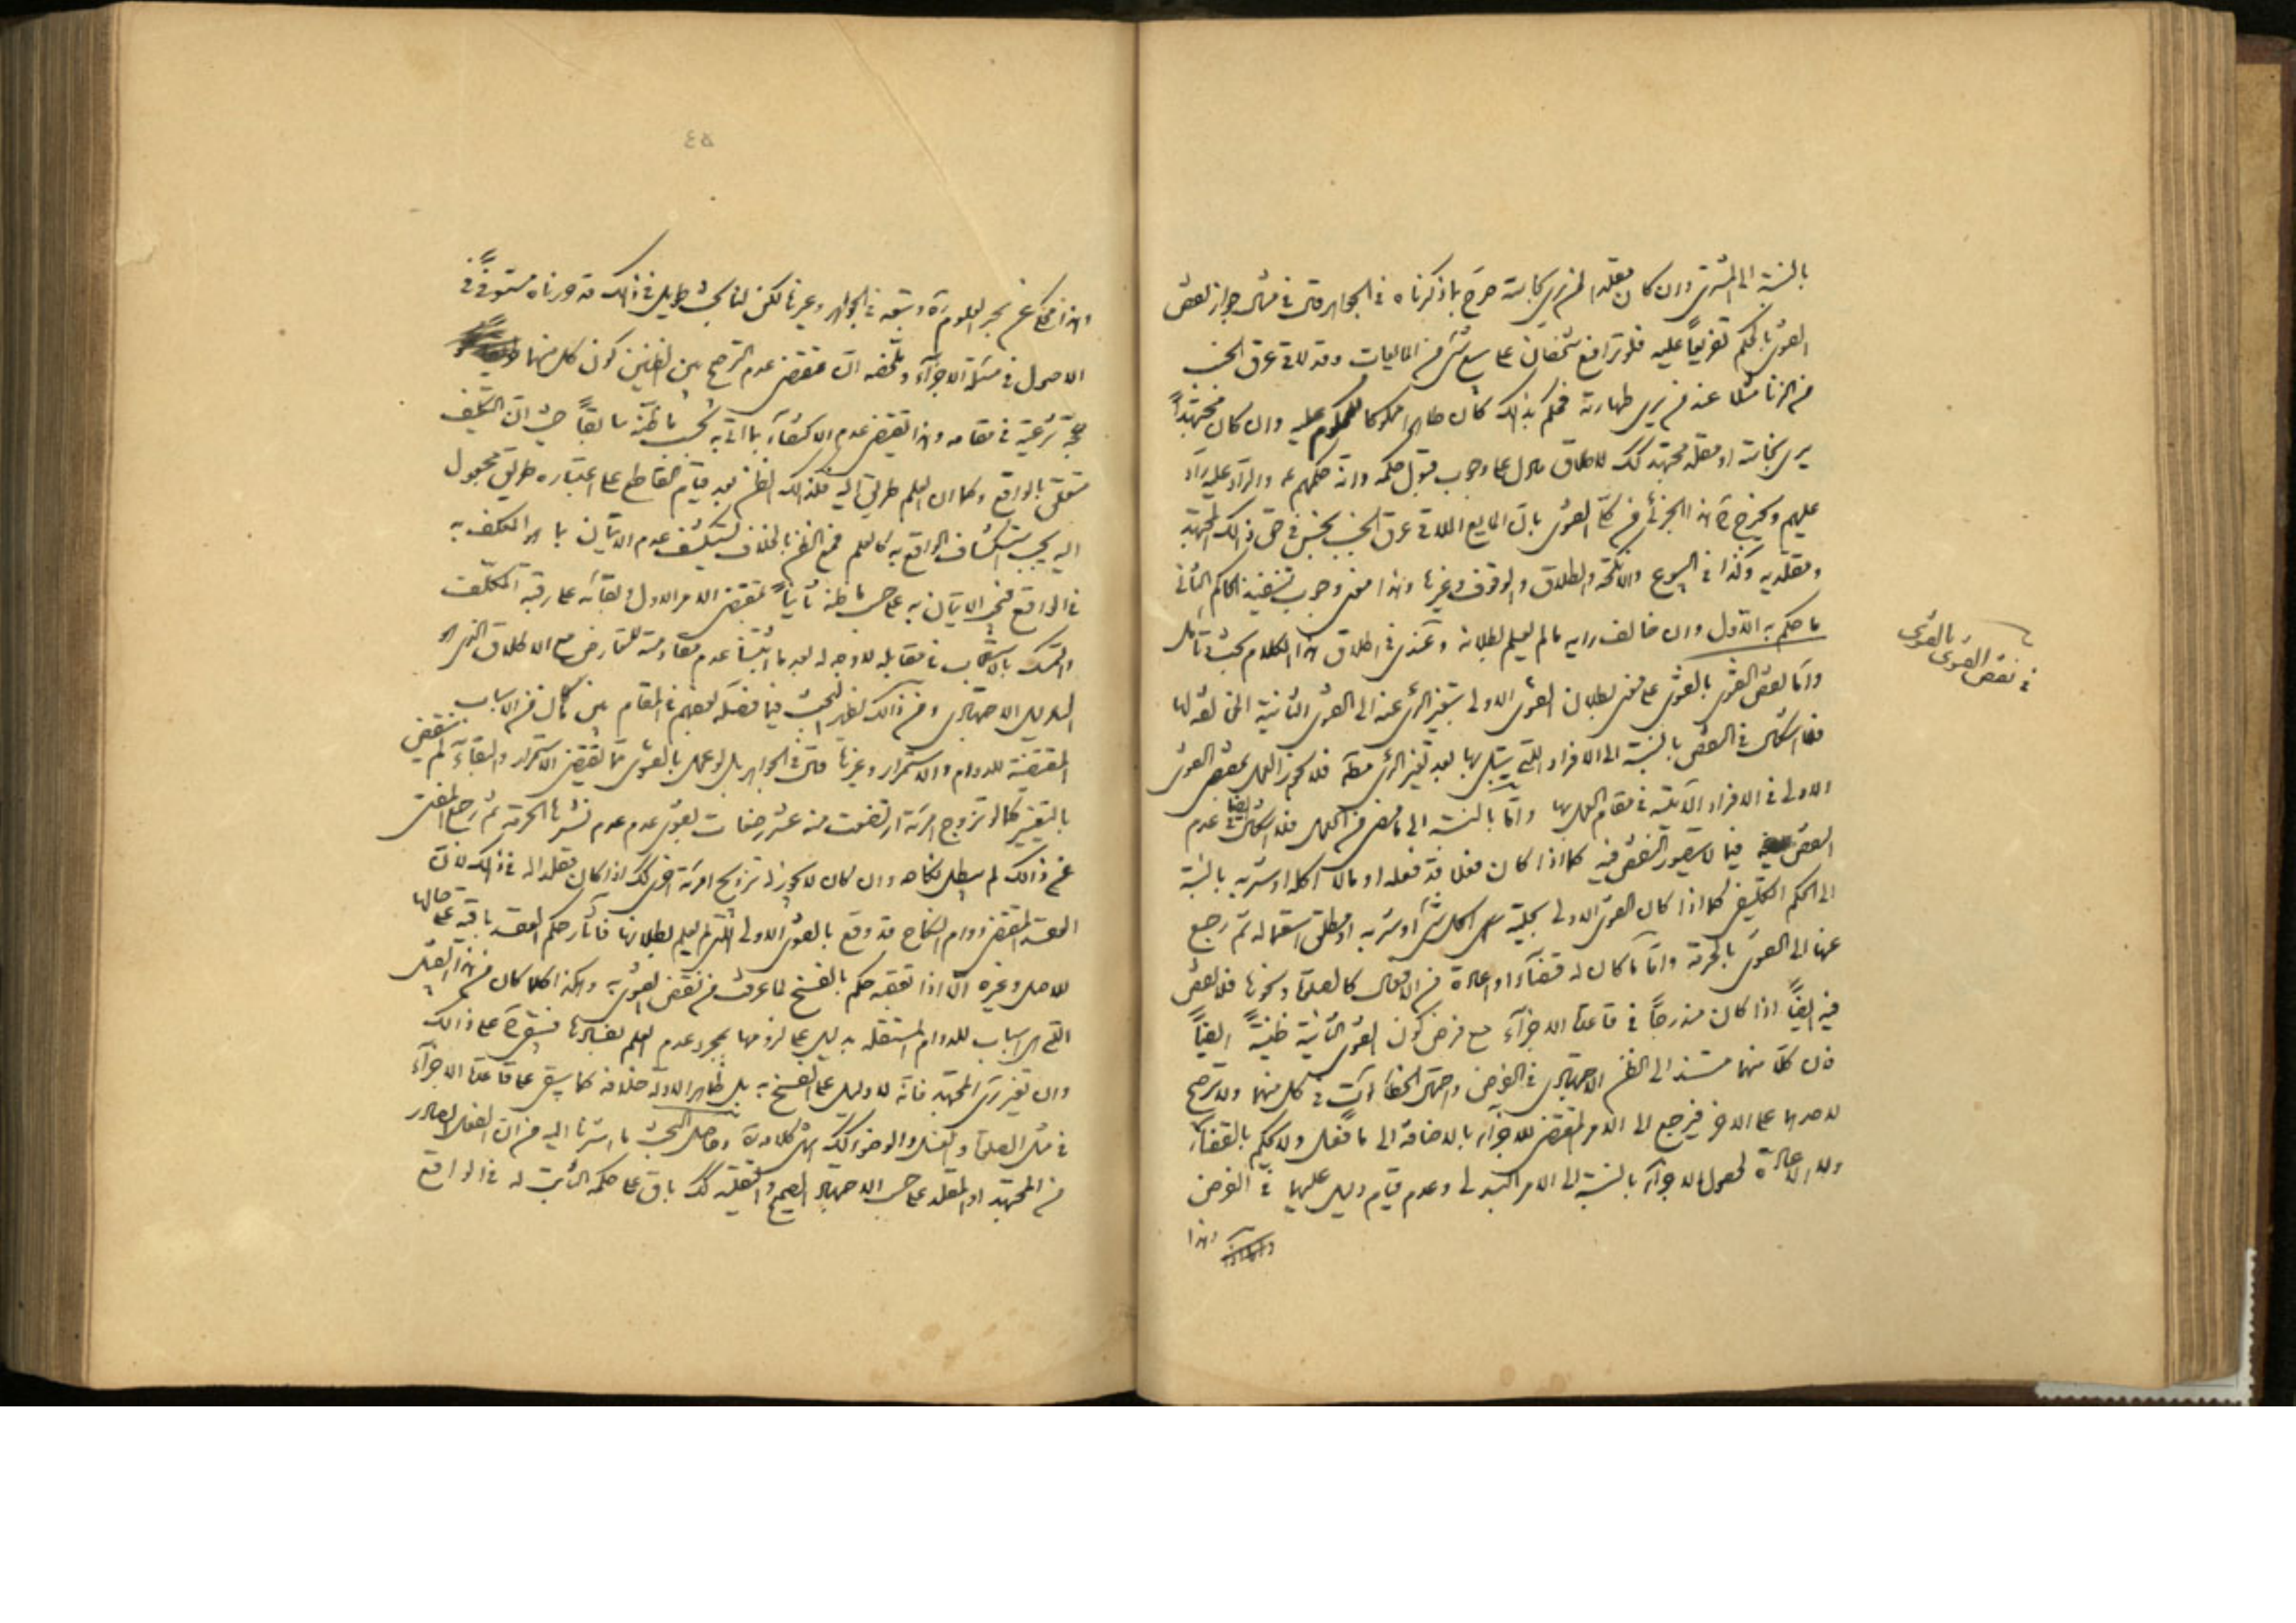 بالنسبة الى المشتري وان كان مقلدا لمن يرى نجاسة صرح بما ذكرناه في الجواهر قال في مسئلة جواز نقض
الفتوى بالحكم تفريعاً عليه فلو ترافع شخصان على بيع شئ من المايعات وقد لاقى عرق الجنب
من الزنا مثلا عند من يرى طهارته فحكم بذلك كان طاهرا مملوكا للمحكوم عليه وان كان مجتهداً
يرى نجاسته او مقلد مجتهد كك لاطلاق ما دل على وجوب قبول حكمه وانه حكمهم ع والراد عليه راد
عليهم ويخرج ح هذا الجزئي من كلي الفتوى بان المايع الملاقي عرق الجنب نجس في حق ذلك المجتهد
ومقلديه وكذا في البيوع والانكحة والطلاق والوقوف وغيرها وهذا معنى وجوب تنفيذ الحاكم الثاني
ما حكم به الاول وان خالف رايه ما لم يعلم بطلانه وعندي في اطلاق هذا الكلام بحث تأمل
في نقض الفتوى بالفتوى
واما نقض الفتوى بالفتوى على معنى بطلان الفتوى الاولى بتغير الرأي عنه الى الفتوى الثانية المخالفة لها
فلا اشكال في النقض بالنسبة الى الافراد التي يبتلى بها بعد تغير الرأي مطلقا فلا يجوز العمل بمقتضى الفتوى
الاولى في الافراد الآتية في مقام العمل بها واما بالنسبة الى ما مضى من العمل فلا اشكال ايضا في عدم
النقض فيما لا يتصور النقض فيه كما اذا كان فعلا قد فعله او مالا اكله او شربه بالنسبة
الى الحكم التكليفي كما اذا كان الفتوى الاولى بحلية اكل شئ او شربه او مطلق استعماله ثم رجع
عنها الى الفتوى بالحرمة واما ما كان له قضاء او اعادة من الافعال كالصلوة ونحوها فلا نقض
فيه ايضاً اذا كان مندرجاً في قاعدة الاجزاء مع فرض كون الفتوى الثانية ظنية ايضاً
لان كلا منهما مستند الى الظن الاجتهادي في الفرض واحتمال الخطأ آت في كل منهما ولا ترجيح
لاحدهما على الاخر فيرجع الى الامر المقتضي للاجزاء بالاضافة الى ما فعل ولا يحكم بالقضاء
ولا الاعادة لحصول الاجزاء بالنسبة الى الامر البدلي وعدم قيام دليل عليهما في الفرض
وهذا
٤٥
وهذا محكي عن بحر العلوم ره وتبعه في الجواهر وغيرها لكن لنا بحث طويل في ذلك قد حررناه مستوفىً في
الاصول في مسئلة الاجزاء وملخصه ان مقتضى عدم الترجيح بين الظنين كون كل منهما
حجة شرعية في مقامه وهذا يقتضي عدم الاكتفاء بما اتى به بحسب ما ظنه سابقاً حيث ان التكليف
متعلق بالواقع وكما ان العلم طريق اليه فكذلك الظن بعد قيام القاطع على اعتباره طريق مجعول
اليه يجب استكشاف الواقع به كالعلم فمع الظن بالخلاف ينكشف عدم الاتيان بما هو المكلف به
في الواقع فيجب الاتيان به على حسب ما ظنه ثانياً بمقتضى الامر الاول وبقائه على رقبة المكلف
والتمسك بالاستصحاب في مقابله لا وجه له بعد ما اثبتنا عدم مقاومته للتعارض مع الاطلاق الذي هو
الدليل الاجتهادي ومن ذلك يظهر البحث فيما فصله بعضهم في المقام بين ما كان من الاسباب
المقتضية للدوام والاستمرار وغيرها قال في الجواهر بل لو عمل بالفتوى بما يقتضي الاستمرار والبقاء لم ينتقض
بالتغيير كما لو تزوج امرئة ارتضعت منه عشر رضعات بفتوى عدم نشرها الحرمة ثم رجع المفتي
عن ذلك لم يبطل نكاحه وان كان لا يجوز له تزويج امرئة اخرى كك اذا كان مقلدا له في ذلك لان
العقد المقتضي دوام النكاح قد وقع بالفتوى الاولى التي لم يعلم بطلانها فآثار حكم العقد باقية على حالها
للاصل وغيره الا اذا تعقبه حكم بالفسخ لما عرفت من نقض الفتوى به وهكذا كلما كان من هذا القبيل
التي هي اسباب للدوام المستقلة بدليل على لزومها بمجرد عدم العلم بفسادها مستقرة على ذلك
وان تغير رأي المجتهد فانه لا دليل على الفسخ به بل ظاهر الادلة خلافه كما يبتني على قاعدة الاجزاء
في مثل الصلوة والغسل والوضوء كك انتهى كلامه ره وحاصل البحث ما اشرنا اليه من ان الفعل الصادر
من المجتهد او المقلد على حسب الاجتهاد الصحيح والتقليد كك باق على حكمه الثابت له في الواقع